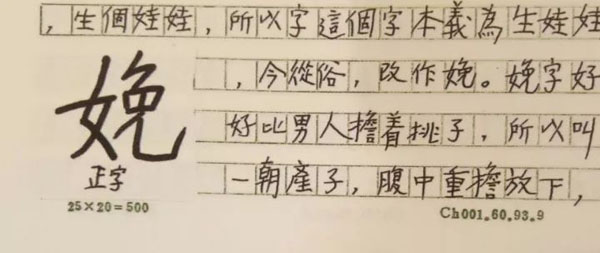 ，生個娃娃，所以字這個字本義為生娃娃
，今從俗，改作娩。娩字好
好比男人擔着挑子，所以叫
一朝產子，腹中重擔放下，
娩
正字
25×20=500
Ch001.60.93.9